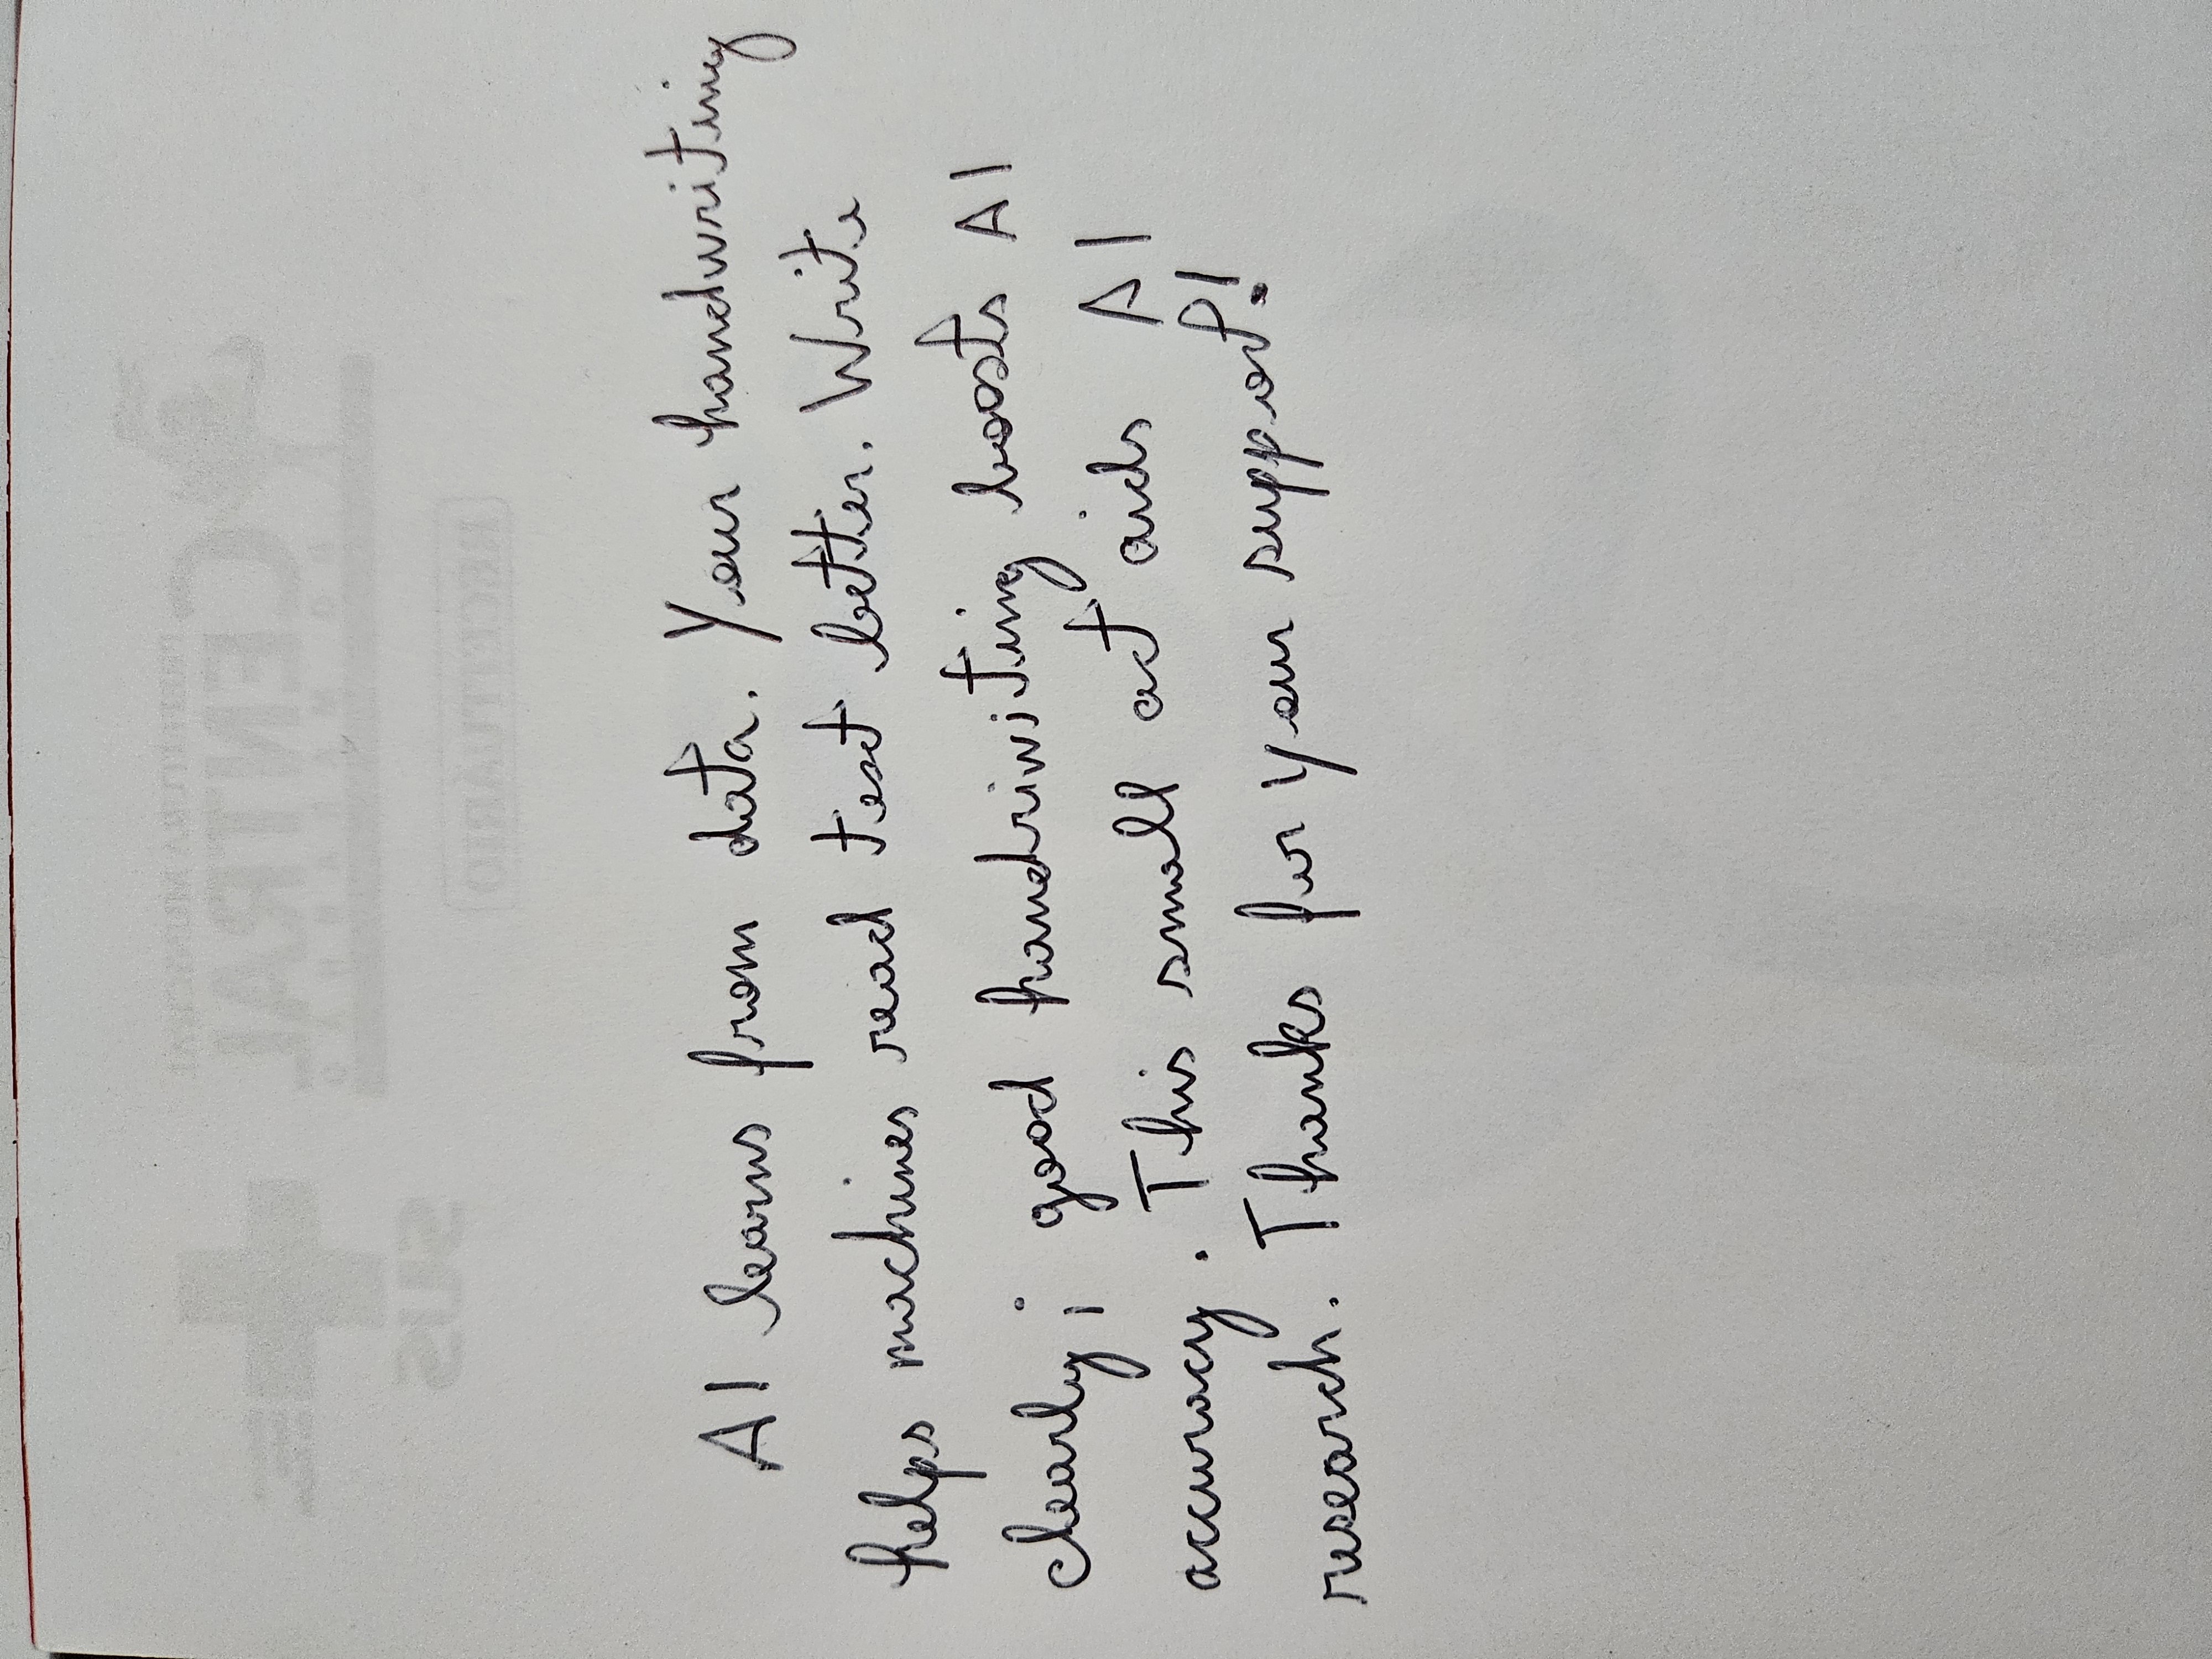 AI learns from data. Your handwriting
helps machines read text better. Write
clearly; good handriwiting boosts AI
accuracy. This small act aids AI
research. Thanks for your support!
CENTRAL
RECEITUÁRIO
SUS